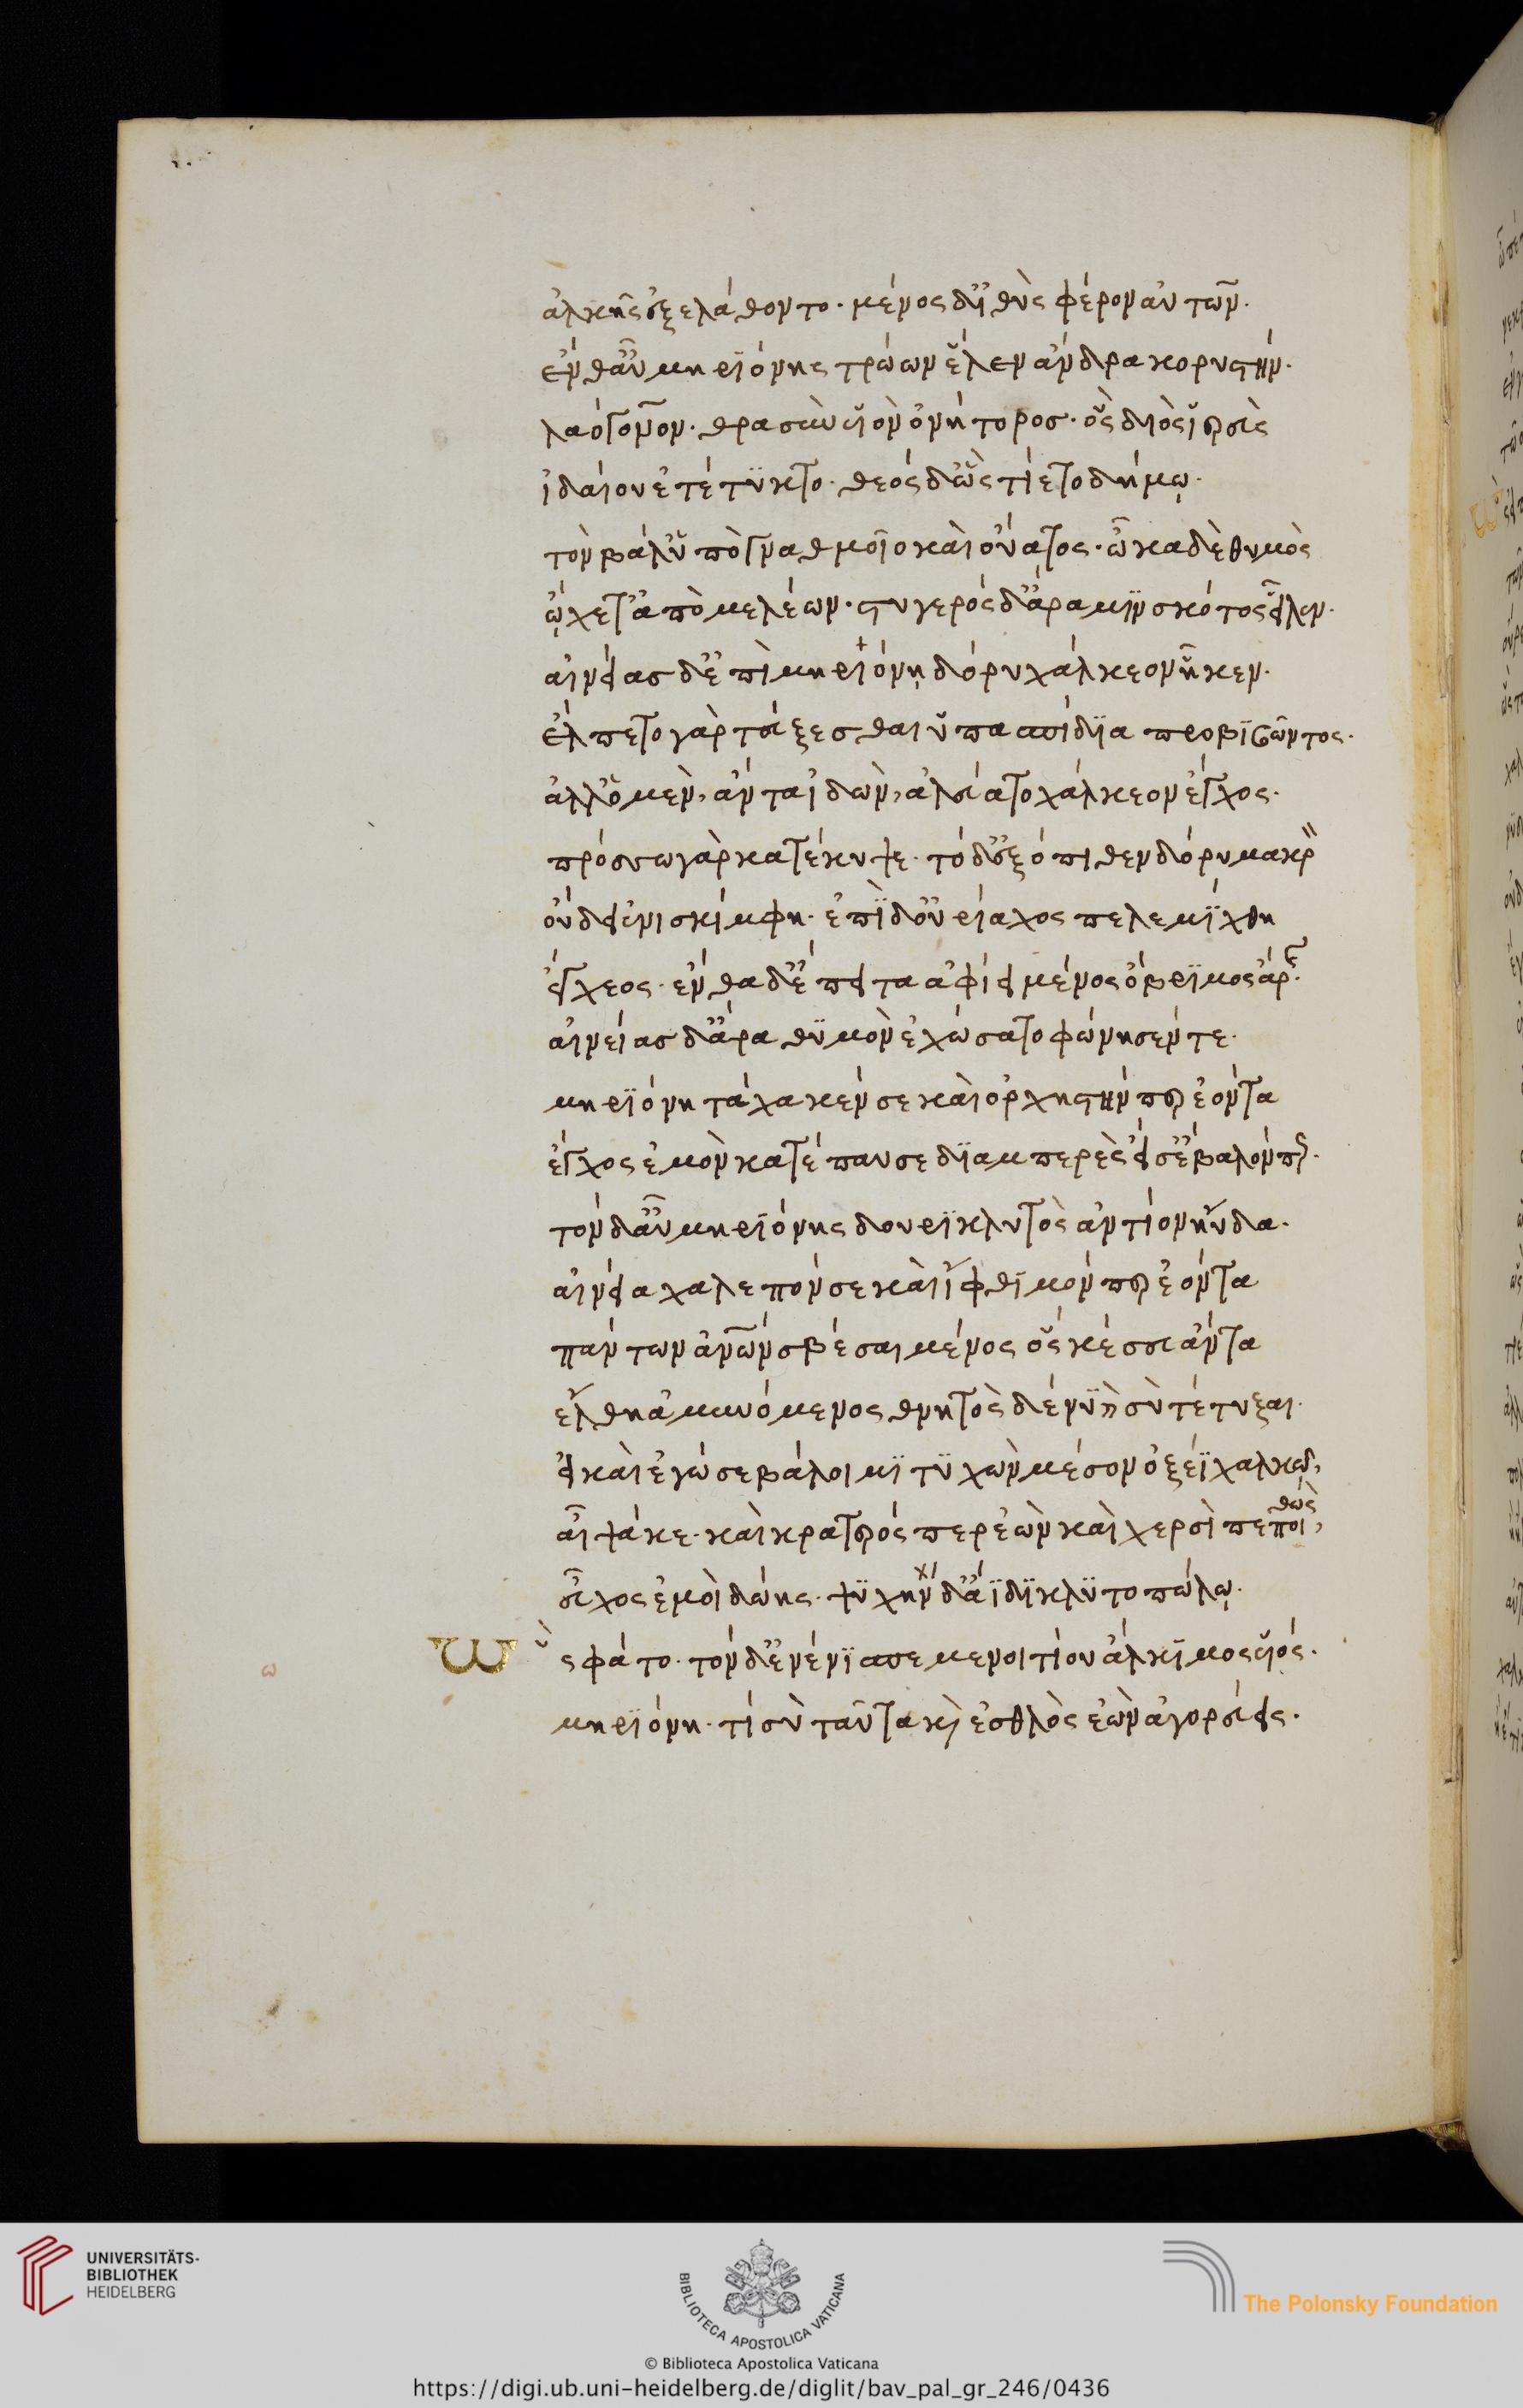 ἀλκῆς ἐξελάθοντο· μένος δ' ἰθὺς φέρον αὐτῶν·
ἔνθ' αὖ μηριόνης τρώων ἕλεν ἄνδρα κορυστήν·
λαόγονον· θρασὺν υἱὸν ὀνήτορος· ὃς διὸς ἱρεὺς
ἰδαίου ἐτέτυκτο· θεὸς δ' ὣς τίετο δήμῳ·
τὸν βάλ' ὑπὸ γναθμοῖο καὶ οὔατος· ὦκα δὲ θυμὸς
ᾤχετ' ἀπὸ μελέων· στυγερὸς δ' ἄρα μιν σκότος εἷλεν·
αἰνείας δ' ἐπὶ μηριόνῃ δόρυ χάλκεον ἧκεν·
ἔλπετο γὰρ τεύξεσθαι ὑπασπίδια προβιβῶντος·
ἀλλ' ὁ μὲν, ἄντα ἰδὼν, ἀλεύατο χάλκεον ἔγχος·
πρόσσω γὰρ κατέκυψε· τὸ δ' ἐξόπιθεν δόρυ μακρὸν
οὔδει ἐνισκίμφη· ἐπὶ δ' οὐρίαχος πελεμίχθη
ἔγχεος· ἔνθα δ' ἔπειτα ἀφίει μένος ὄβριμος ἄρης·
αἰνείας δ' ἄρα θυμὸν ἐχώσατο φώνησέν τε·
μηριόνη τάχα κέν σε καὶ ὀρχηστήν περ ἐόντα
ἔγχος ἐμὸν κατέπαυσε διαμπερὲς εἴ σ' ἔβαλόν περ·
τὸν δ' αὖ μηριόνης δουρικλυτὸς ἀντίον ηὔδα·
αἰνεία χαλεπόν σε καὶ ἴφθιμόν περ ἐόντα
πάντων ἀνθρώπων σβέσαι μένος ὅς κέ σευ ἄντα
ἔλθῃ ἀμυνόμενος θνητὸς δέ νυ καὶ σὺ τέτυξαι·
εἰ καὶ ἐγώ σε βάλοιμι τυχὼν μέσον ὀξέϊ χαλκῷ,
αἶψά κε· καὶ κρατερός περ ἐὼν καὶ χερσὶ πεποιθὼς,
εὖχος ἐμοὶ δώης· ψυχὴν δ' ἄϊδι κλυτοπώλῳ·
ὣς φάτο· τὸν δ' ἐνένιπε μενοιτίου ἄλκιμος υἱός·
μηριόνη· τί σὺ ταῦτα καὶ ἐσθλὸς ἐὼν ἀγορεύεις·
ω
UNIVERSITÄTS-
BIBLIOTHEK
HEIDELBERG
BIBLIOTECA APOSTOLICA VATICANA
The Polonsky Foundation
© Biblioteca Apostolica Vaticana
https://digi.ub.uni-heidelberg.de/diglit/bav_pal_gr_246/0436